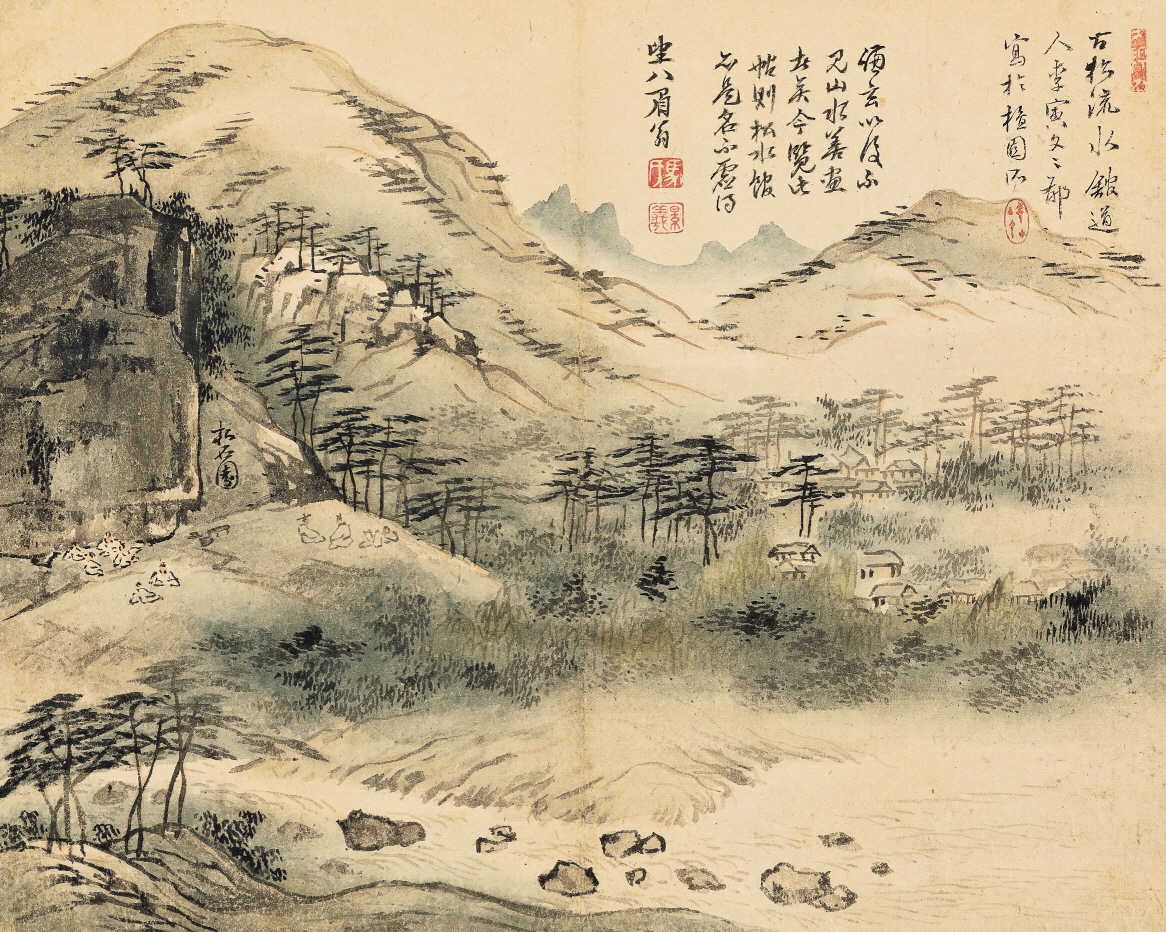 古松流水館道
人李寅文〻郁
寫於檀園所
謙玄以後不
見山水善畫
者矣今覽此
帖則松水館
亦是名不虛得
八眉翁
松石園